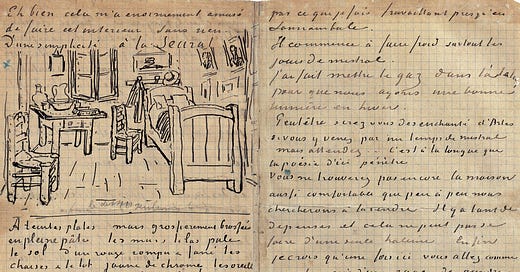 Eh bien cela m'a enormement amusé
de faire cet interieur Sans rien
D'une simplicité à la Seurat.
A teintes plates mais grossierement brossées
en pleine pâte les murs lilas pale
le sol d'un rouge rompu & fané les
chaises & le lit jaune de chrome les oreillers
par ce que je fais travaillant presqu'en
somnambule.
Il commence à faire froid surtout les
jours de mistral.
j'ai fait mettre le gaz dans l'atelier
pour que nous ayons une bonne
lumière en hiver.
Peutêtre serez vous desenchanté d'Arles
si vous y venez par un temps de mistral
mais attendez.. C'est à la longue que
la poésie d'ici pénètre.
Vous ne trouverez pas encore la maison
aussi confortable que peu à peu nous
chercherons à la rendre. Il y a tant de
depenses et cela ne peut pas se
faire d'une seule haleine. Enfin
je crois qu'une fois ici vous allez comme